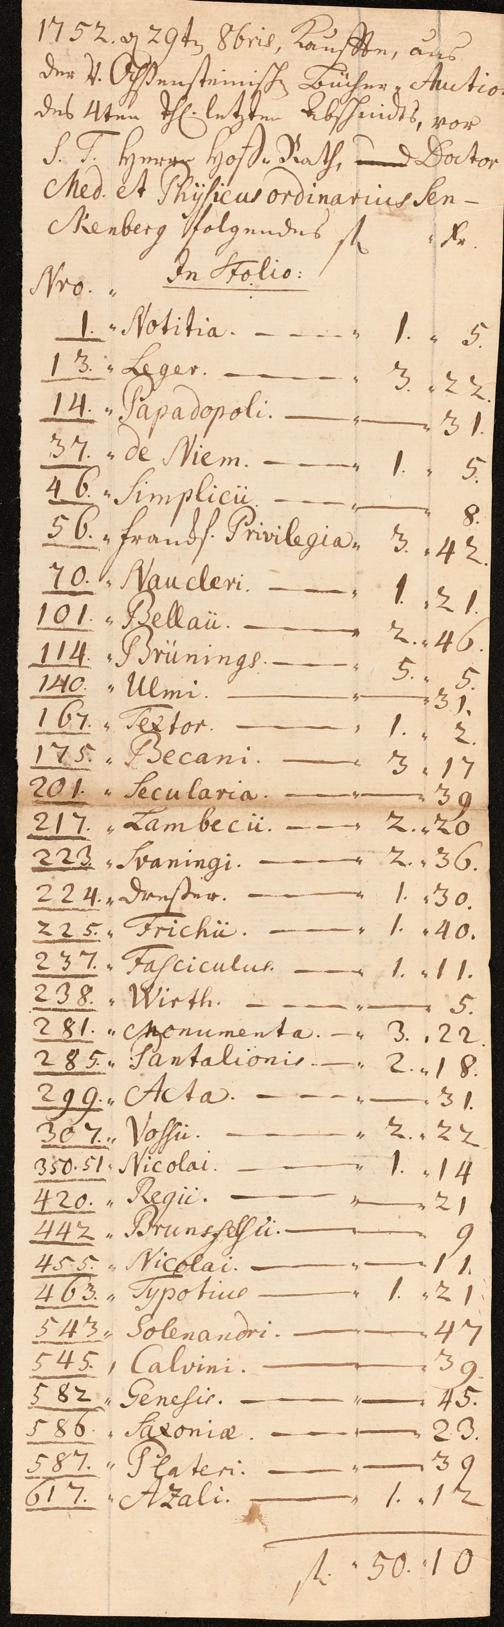 1752. d 29ten 8bris, Kauffte, aus
der V. Ochsensteinisch Bücher-Auction
des 4ten Thl. letzten Abschnidts, vor
S. T. Herrn Hoff-Rath, Doctor
Med. et Physicus ordinarius Sen-
ckenberg folgendes fl. Xr.
Nro. In Folio:
1. Notitia. 1. 5.
13. Leger. 3. 22.
14. Papadopoli. 31.
37. de Niem. 1. 5.
46. Simplicii. 8.
56. francks. Privilegia 3. 42.
70. Naucleri. 1. 21.
101. Bellaii. 2. 46.
114. Brünings. 5. 5.
140. Ulmi. 31.
167. Textor. 1. 2.
175. Becani. 3. 17
201. Secularia. 39
217. Lambecii. 2. 20
223. Svaningi. 2. 36.
224. Dresser. 1. 30.
225. Frichii. 1. 40.
237. Fasciculus. 1. 11.
238. Wirth. 5.
281. Monumenta. 3. 22.
285. Pantalionis. 2. 18.
299. Acta. 31.
307. Vossii. 2. 22
350.51 Nicolai. 1. 14
420. Regii. 21
442 Brunsfelsii. 9
455. Nicolai. 11.
463. Typotius 1. 21
543. Solenandri. 47
545. Calvini. 39.
582 Genesis. 45.
586. Saxoniæ. 23.
587. Plateri. 39
617. Azali. 1. 12
fl. 50. 10